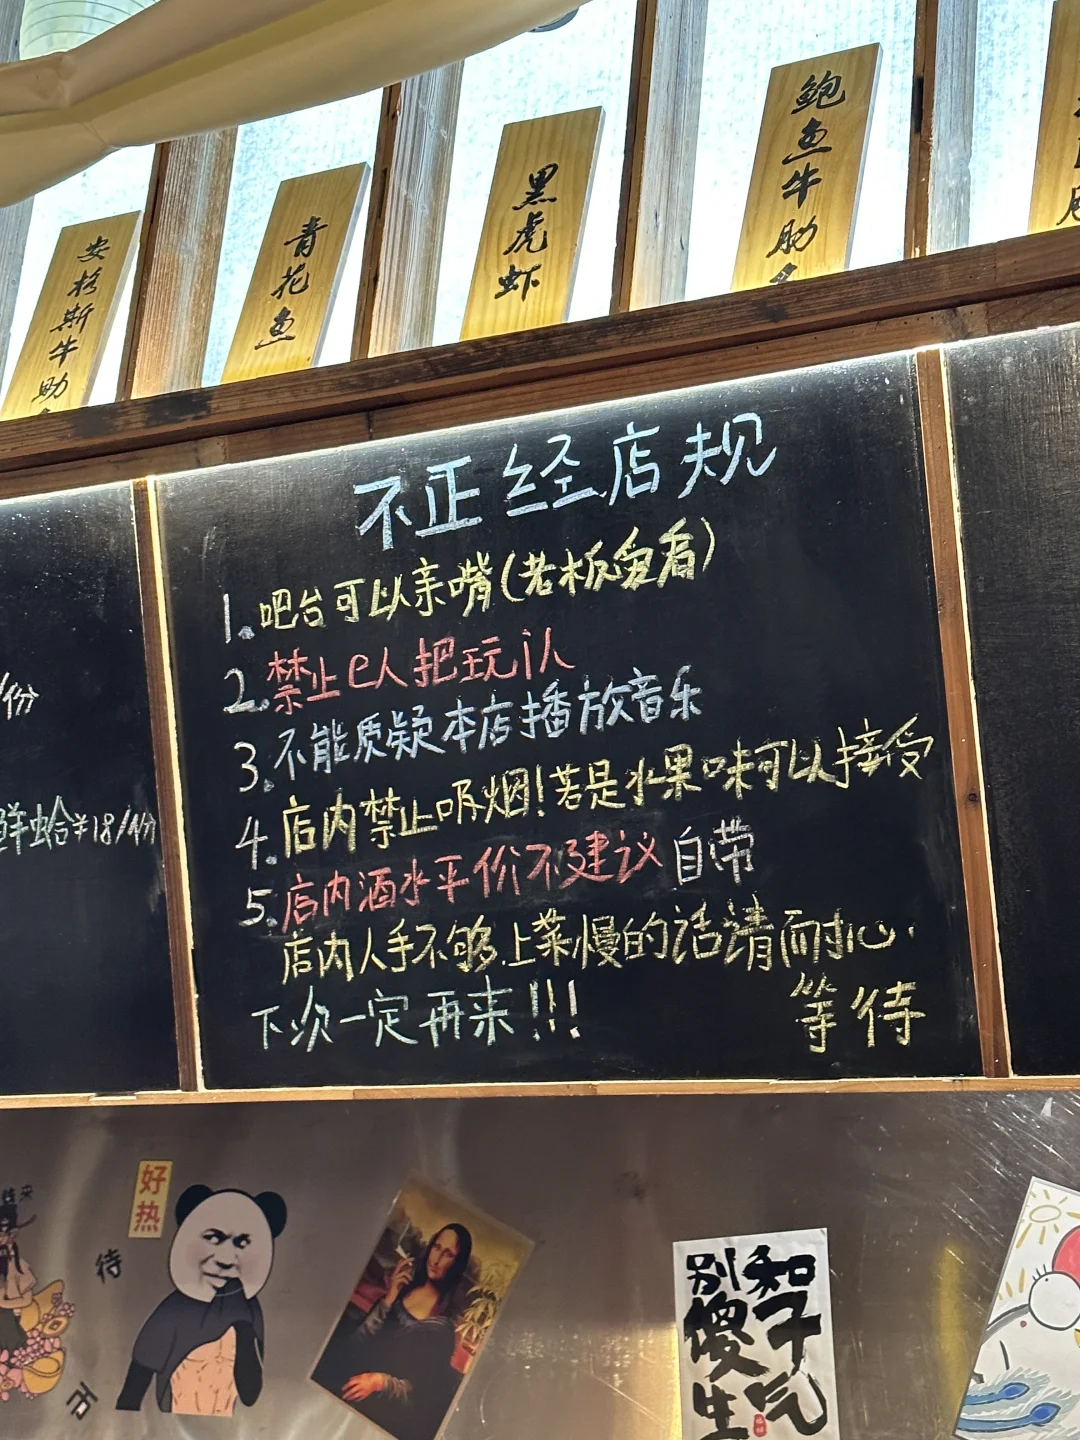 安格斯牛肋
青花鱼
黑虎虾
鲍鱼牛肋
不正经店规
1.吧台可以亲嘴(老板爱看)
2.禁止e人把玩i人
3.不能质疑本店播放音乐
4.店内禁止吸烟!若是水果味可以接受
5.店内酒水平价不建议自带
店内人手不够上菜慢的话请耐心
等待
下次一定再来!!!
/份
鲜蛤¥18/份
好热
待
和子气
别傻生